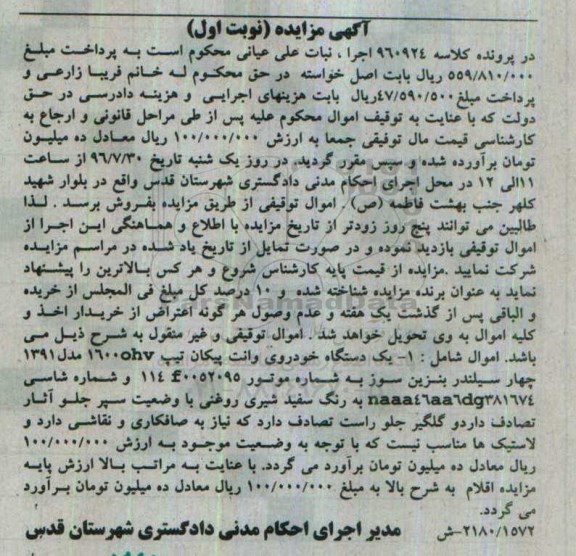 آگهی مزایده (نوبت اول)
در پرونده کلاسه ۹۶۰۹۲۴ اجرا ، نبات علی عیانی محکوم است به پرداخت مبلغ
۵۵۹/۸۱۰/۰۰۰ ریال بابت اصل خواسته در حق محکوم له خانم فریبا زارعی و
پرداخت مبلغ۴۷/۵۹۰/۵۰۰ریال بابت هزینهای اجرایی و هزینه دادرسی در حق
دولت که با عنایت به توقیف اموال محکوم علیه پس از طی مراحل قانونی و ارجاع به
کارشناسی قیمت مال توقیفی جمعا به ارزش ۱۰۰/۰۰۰/۰۰۰ ریال معادل ده میلیون
تومان برآورده شده و سپس مقرر گردید. در روز یک شنبه تاریخ ۹۶/۷/۳۰ از ساعت
۱۱الی ۱۲ در محل اجرای احکام مدنی دادگستری شهرستان قدس واقع در بلوار شهید
کلهر جنب بهشت فاطمه (ص) . اموال توقیفی از طریق مزایده بفروش برسد . لذا
طالبین می توانند پنج روز زودتر از تاریخ مزایده با اطلاع و هماهنگی این اجرا از
اموال توقیفی بازدید نموده و در صورت تمایل از تاریخ یاد شده در مراسم مزایده
شرکت نمایید .مزایده از قیمت پایه کارشناس شروع و هر کس بالاترین را پیشنهاد
نماید به عنوان برنده مزایده شناخته شده و ۱۰ درصد کل مبلغ فی المجلس از خریده
و الباقی پس از گذشت یک هفته و عدم وصول هر گونه اعتراض از خریدار اخذ و
کلیه اموال به وی تحویل خواهد شد . اموال توقیفی و غیر منقول به شرح ذیل می
باشد. اموال شامل : ۱- یک دستگاه خودروی وانت پیکان تیپ ۱۶۰۰ohv مدل۱۳۹۱
چهار سیلندر بنزین سوز به شماره موتور ۱۱۴ f۰۰۵۲۰۹۵ و شماره شاسی
naaa٤٦aa٦dg۳۸۱۶۷٤ به رنگ سفید شیری روغنی با وضعیت سپر جلو آثار
تصادف داردو گلگیر جلو راست تصادف دارد که نیاز به صافکاری و نقاشی دارد و
لاستیک ها مناسب نیست که با توجه به وضعیت موجود به ارزش ۱۰۰/۰۰۰/۰۰۰
ریال معادل ده میلیون تومان برآورد می گردد. با عنایت به مراتب بالا ارزش پایه
مزایده اقلام به شرح بالا به مبلغ ۱۰۰/۰۰۰/۰۰۰ ریال معادل ده میلیون تومان برآورد
می گردد.
۲۱۸۰/۱۵۷۲-ش مدیر اجرای احکام مدنی دادگستری شهرستان قدس
ParsNamadData